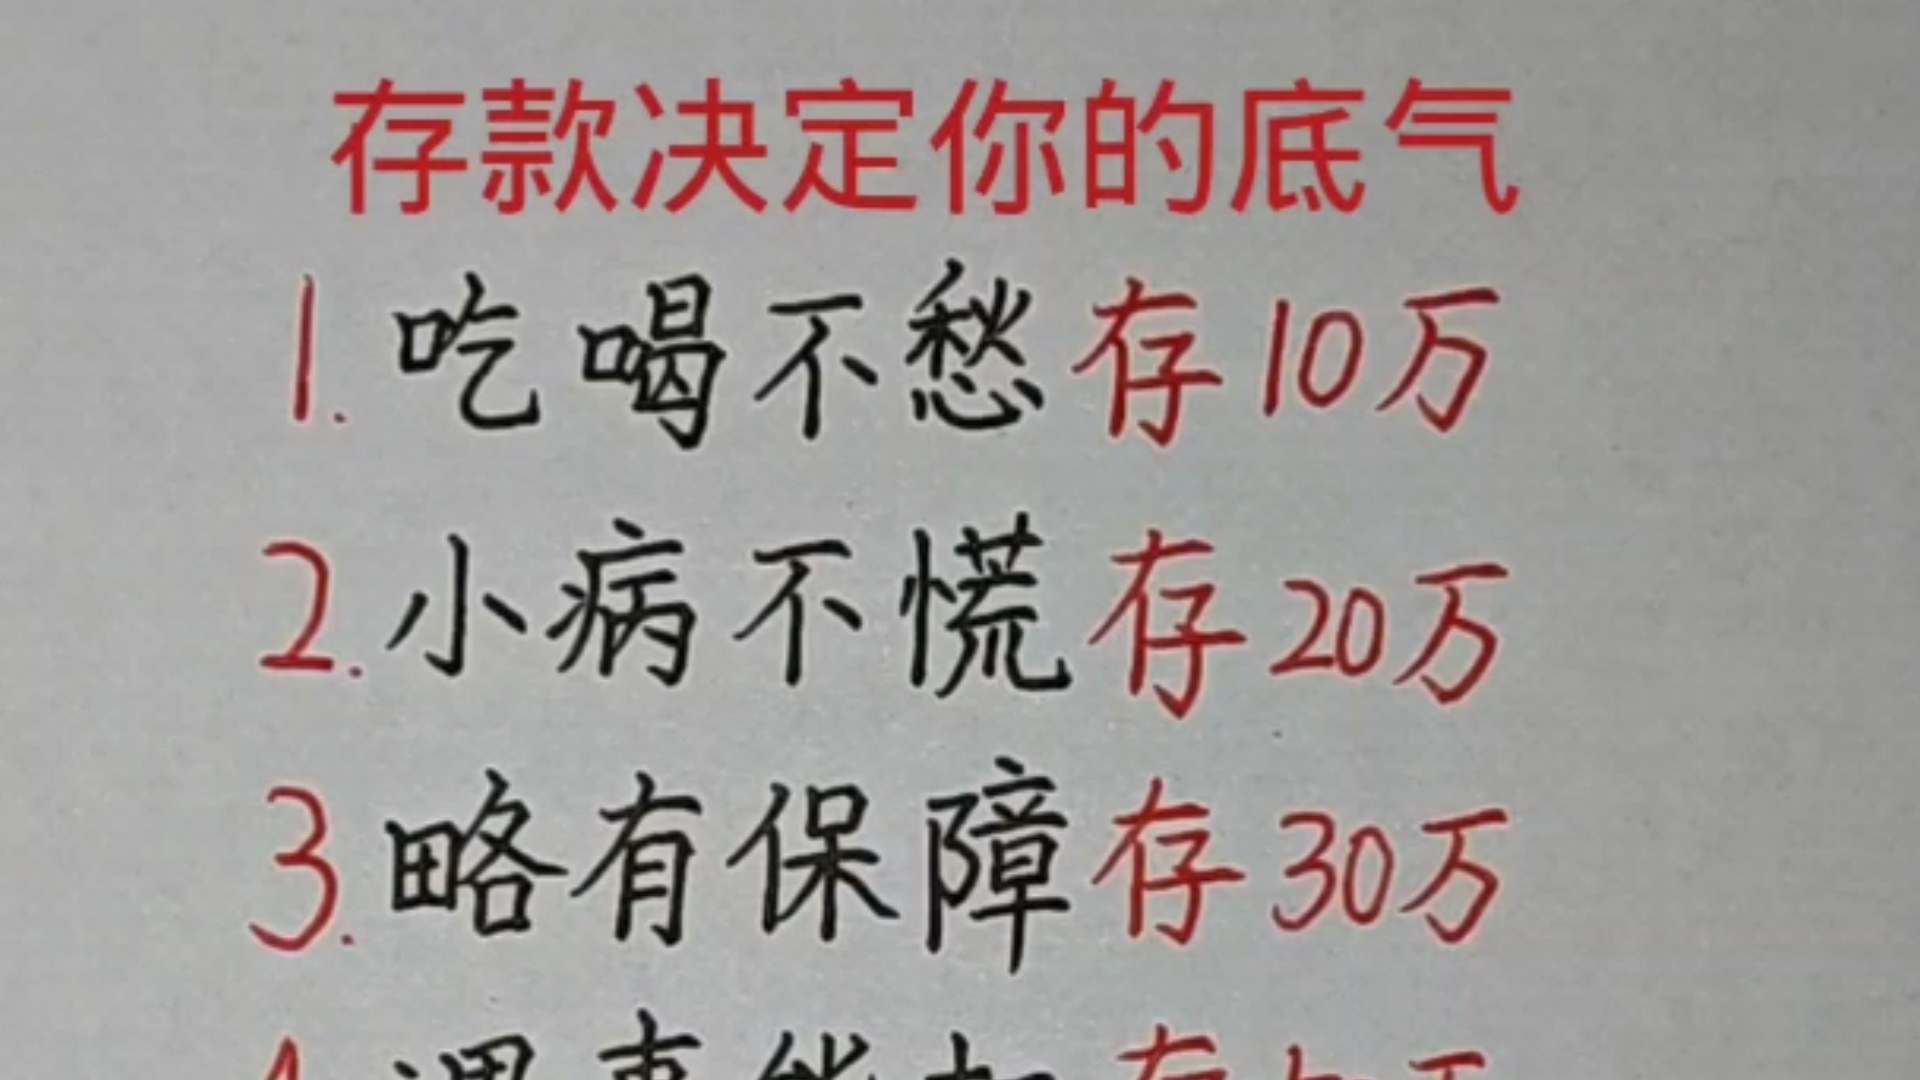 存款决定你的底气
1.吃喝不愁存10万
2.小病不慌存20万
3.略有保障存30万